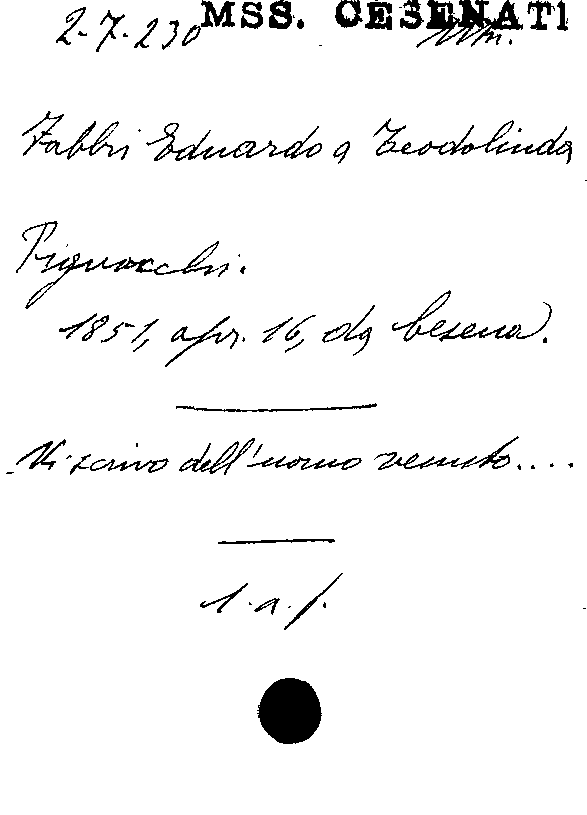 MSS. CESENATI
2-7-230
Fabbri Eduardo a Teodolinda
Pignocchi.
1851, apr. 16, da Cesena.
Vi scrivo dell'uomo venuto....
l. a. f.